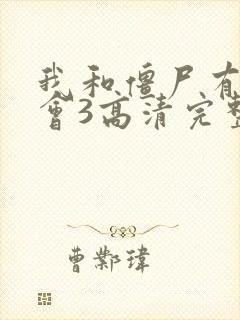 我和僵尸有
会3高清完整
曹鄴瑋